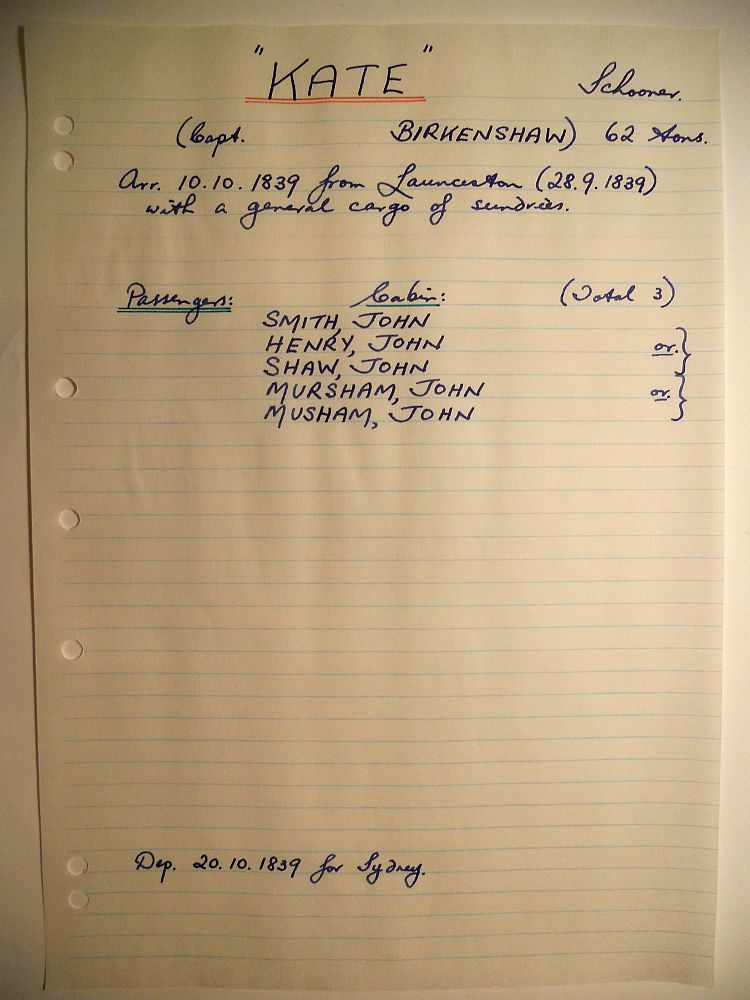 "KATE" Schooner.
(Capt. BIRKENSHAW) 62 tons.
Arr. 10.10.1839 from Launceston (28.9.1839)
with a general cargo of sundries.
Passengers: Cabin: (Total 3)
SMITH, JOHN
HENRY, JOHN or. }
SHAW, JOHN
MURSHAM, JOHN or. }
MUSHAM, JOHN
Dep. 20.10.1839 for Sydney.